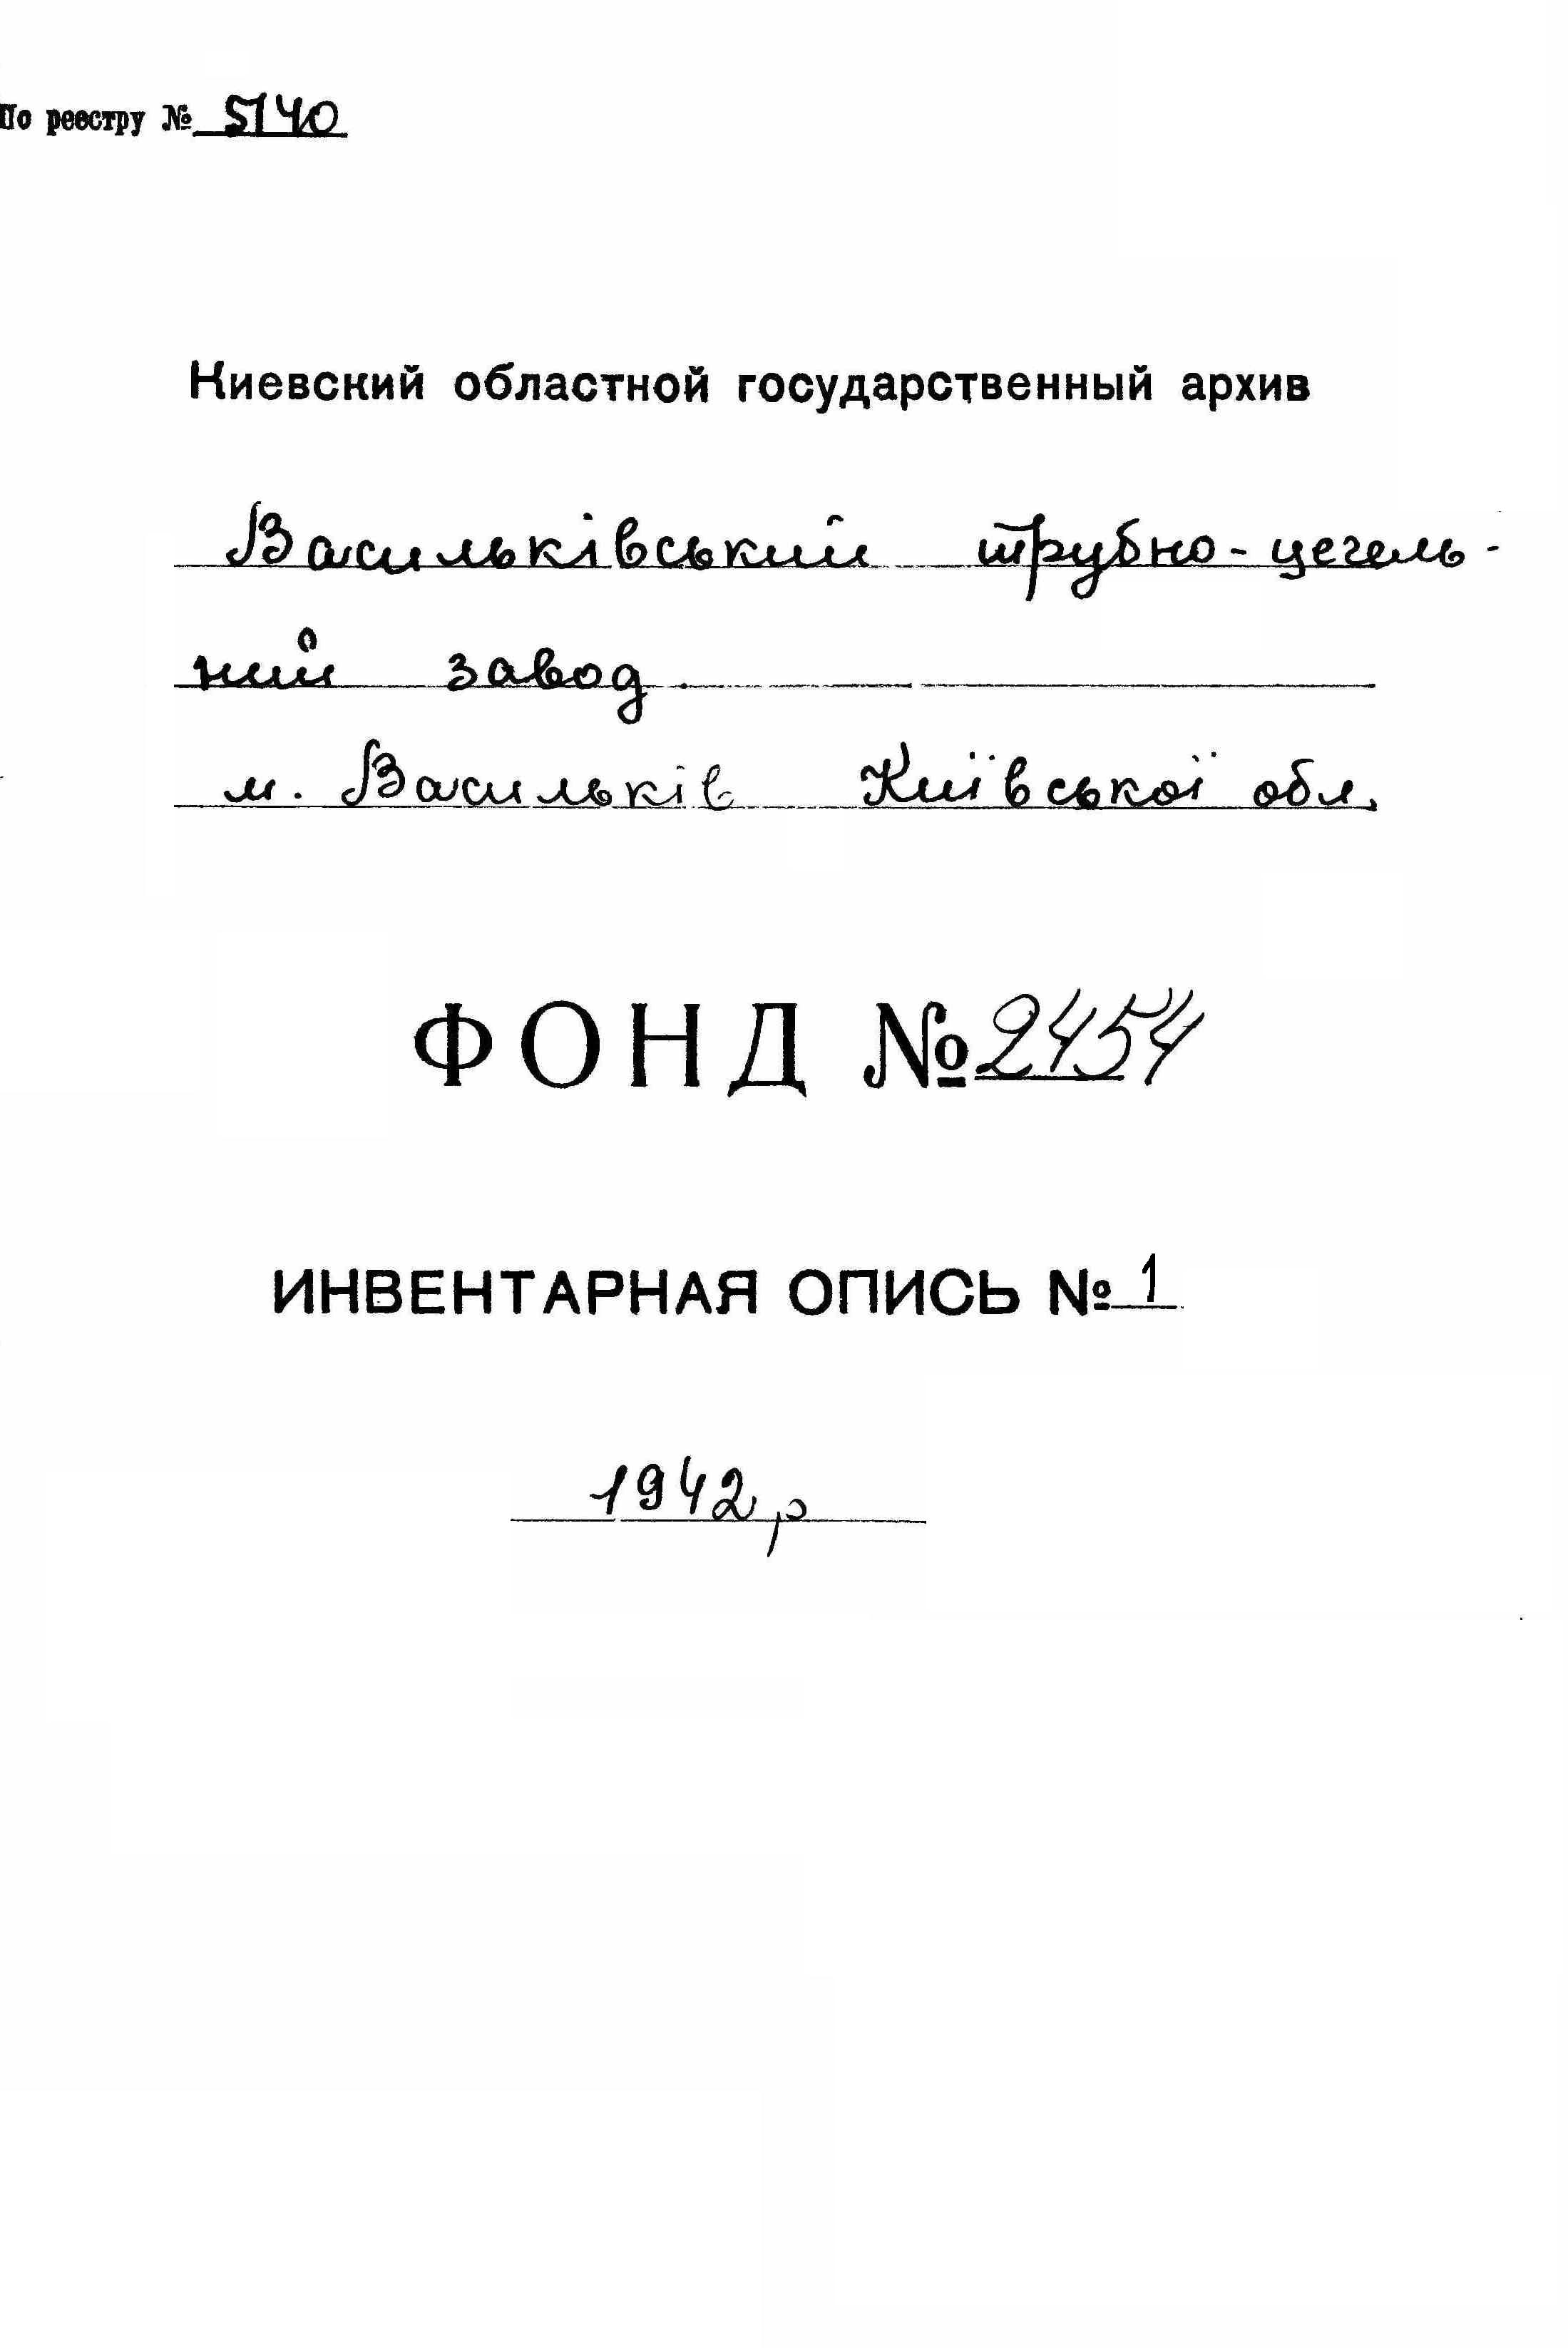 По реестру № 5140
Киевский областной государственный архив
Васильківський трубно-цегель-
ний завод
м. Васильків Київської обл.
ФОНД № 2454
ИНВЕНТАРНАЯ ОПИСЬ № 1
1942 р